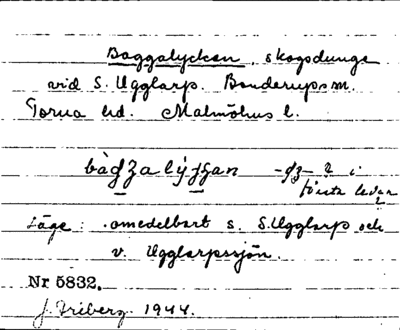 Baggalycken, skogsdunge
vid S. Ugglarp. Bonderups sn.
Torna hd. Malmöhus l.
-dz- ? i
första leden
?
Läge: omedelbart s. S. Ugglarp och
v. Ugglarpssjön.
Nr 5832.
J. Friberg. 1944.